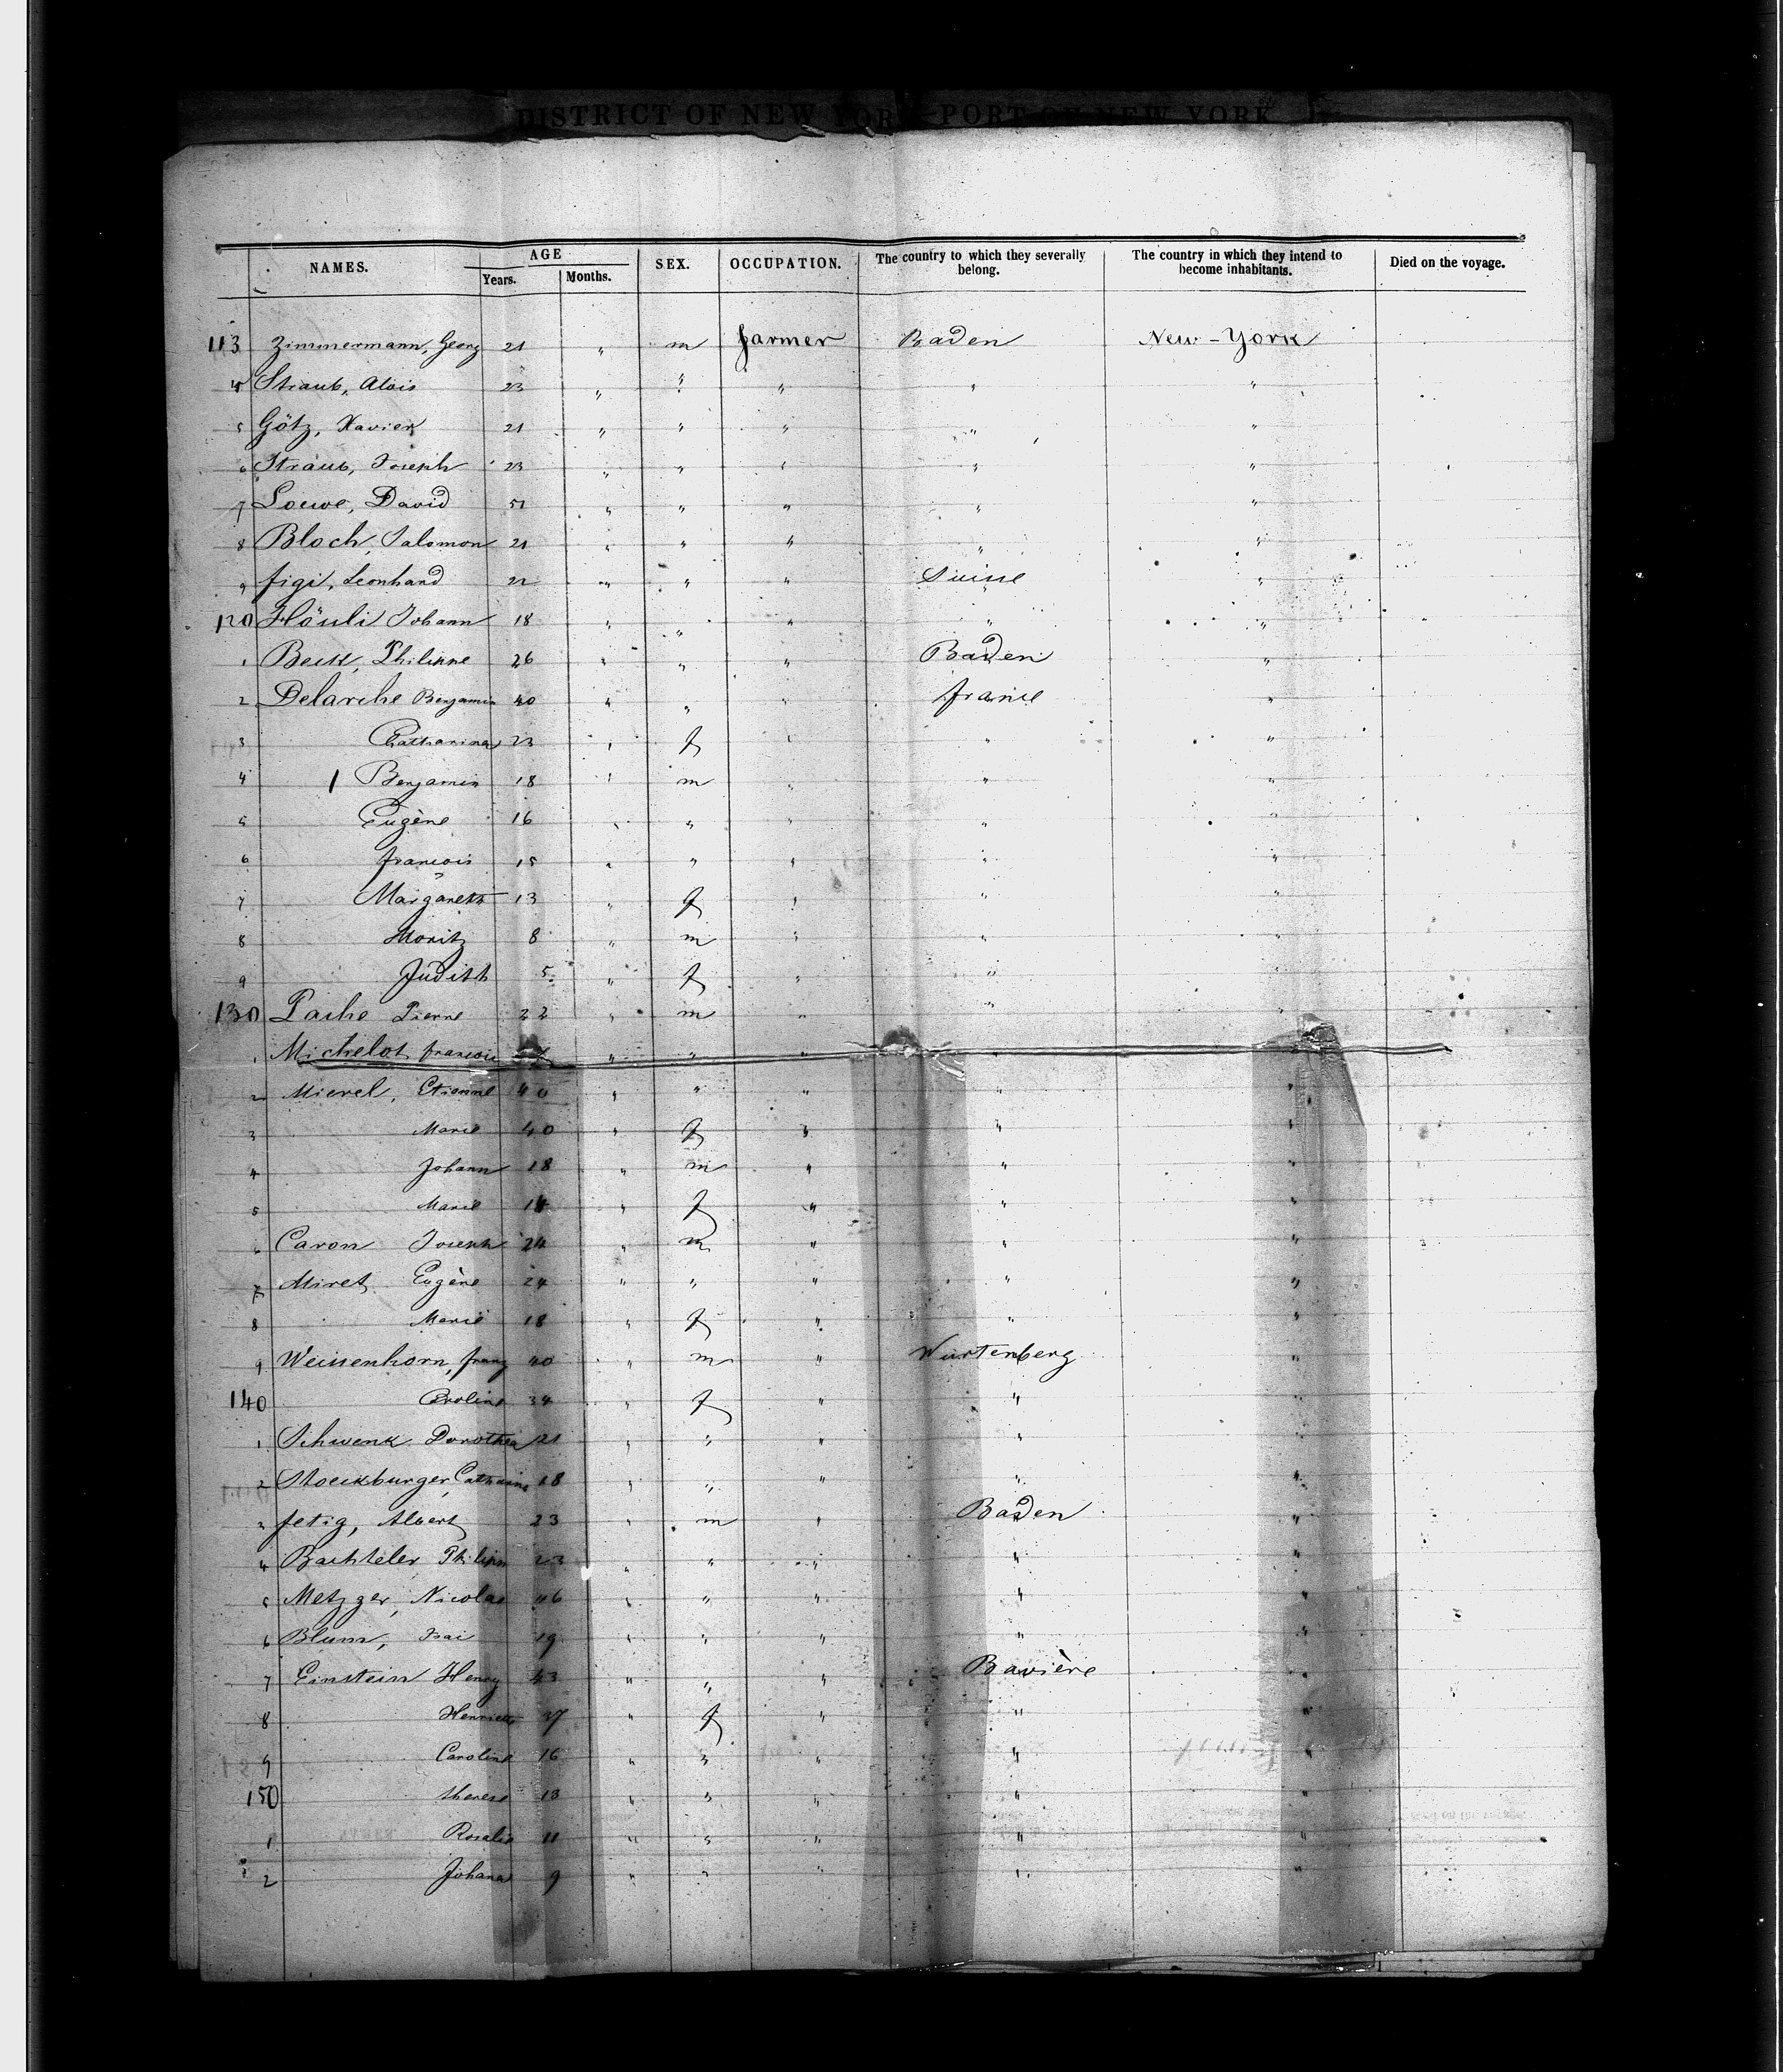 DISTRICT OF NEW YORK—PORT OF NEW YORK
NAMES. AGE Years. Months. SEX. OCCUPATION. The country to which they severally belong. The country in which they intend to become inhabitants. Died on the voyage.
113 Zimmermann, Georg 21 " m farmer Baden New-York
4 Straub, Alois 23 " " " " "
5 Götz, Xavier 21 " " " " "
6 Straub, Joseph 23 " " " " "
7 Loewe, David 51 " " " " "
8 Bloch, Salomon 21 " " " " "
9 figi, Leonhard 22 " " " Suisse "
120 Johann 18 " " " " "
1 Beck, Philippe 26 " " " Baden "
2 Delarche Benjamin 40 " " " france "
3 Catharina 23 " f " " "
4 Benjamin 18 " m " " "
5 Eugène 16 " " " " "
6 francois 15 " " " " "
7 Margareth 13 " f " " "
8 Moritz 8 " m " " "
9 Judith 5 " f " " "
130 Pache Pierre 22 " m " " "
1 Michelot francois " " " "
2 Mierel, Etienne 40 " " " " "
3 Marie 40 " f " " "
4 Johann 18 " m " " "
5 Marie 14 " f " " "
6 Caron Joseph 24 " m " " "
7 Miret Eugène 24 " " " " "
8 Marie 18 " f " " "
9 Weissenhorn, franz 40 " m " Würtenberg "
140 Caroline 34 " f " " "
1 Schwenk Dorothea 21 " " " " "
2 Stoeckburger, Catharine 18 " " " " "
3 fetig, Albert 23 " m " Baden "
4 Bachteler Philipp 23 " " " " "
5 Metzger, Nicolas 46 " " " " "
6 Blum, Isai 19 " " " " "
7 Einstein Henry 43 " " " Bavière "
8 Henriette 37 " f " " "
9 Caroline 16 " " " " "
150 therese 13 " " " " "
1 Rosalie 11 " " " " "
2 Johana 9 " " " " "